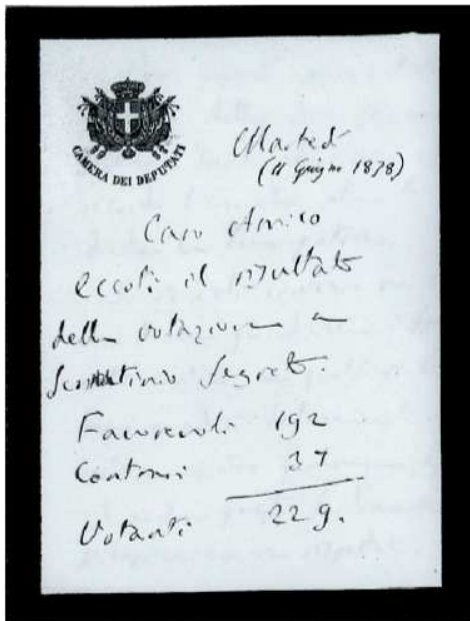 CAMERA DEI DEPUTATI
Martedì
(11 Giugno 1878)
Caro Amico
eccoti il risultato
della votazione a
Scrutinio Segreto.
Favorevoli 192
Contrari 37
Votanti 229.